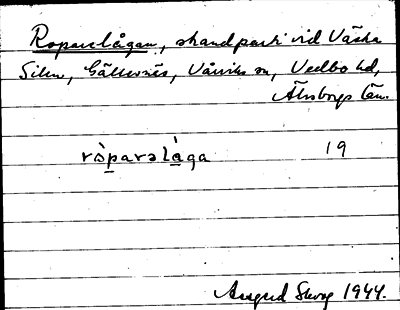 Roparelågan, strandparti vid Västra
Silen, Gällesnäs, Vårviks sn, Vedbo hd,
Älvsborgs län.
ròparəlåga 19
1944.